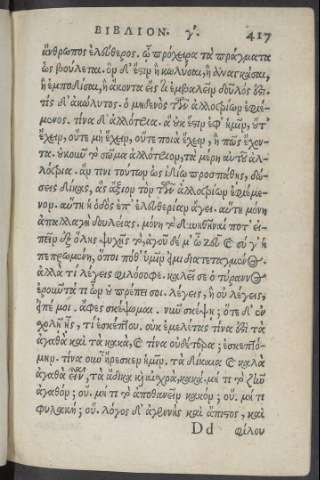 ΒΙΒΛΙΟΝ. γ΄. 417
ἄνθρωπος ἐλεύθερος. ᾧ πρόχειρα τὰ πράγματα
ὡς βούλεται. ὃν δ' ἔστιν ἢ κωλῦσαι, ἢ ἀναγκάσαι,
ἢ ἐμποδίσαι, ἢ ἄκοντα εἴς τι ἐμβαλεῖν δοῦλός ἐστι.
τίς δ' ἀκώλυτος. ὁ μηδενὸς τῶν ἀλλοτρίων ἐφιέ-
μενος. τίνα δ' ἀλλότρια. ἃ οὐκ ἔστιν ἐφ' ἡμῖν, οὔτ'
ἔχειν, οὔτε μὴ ἔχειν, οὔτε ποιὰ ἔχειν, ἢ πῶς ἔχον-
τα. οὐκοῦν τὸ σῶμα ἀλλότριον, τὰ μέρη αὐτοῦ ἀλ-
λότρια. ἄν τινι τούτων ὡς ἰδίῳ προσπάθῃς, δώ-
σεις δίκας, ἃς ἄξιον τὸν τῶν ἀλλοτρίων ἐφιέμε-
νον. αὕτη ἡ ὁδὸς ἐπ' ἐλευθερίαν ἄγει. αὕτη μόνη
ἀπαλλαγὴ δουλείας. μόνη τὸ δυνηθῆναί ποτ' εἰ-
πεῖν ἐξ ὅλης ψυχῆς τὸ, ἄγου δέ μ' ὦ ζεῦ καὶ σύ γ' ἡ
πεπρωμένη, ὅποι ποθ' ὑμῖν εἰμι διατεταγμένος.
ἀλλὰ τί λέγεις φιλόσοφε. καλεῖ σε ὁ τύραννος
ἐροῦντά τι ὧν οὐ πρέπει σοι. λέγεις, ἢ οὐ λέγεις,
εἰπέ μοι. ἄφες σκέψομαι. νῦν σκέψῃ; ὅτε δ' ἐν
σχολῇ ἦς, τί ἐσκέπτου. οὐκ ἐμελέτας τίνα ἐστὶ τὰ
ἀγαθὰ καὶ τὰ κακὰ, καὶ τίνα οὐδέτερα; ἐσκεπτό-
μην. τίνα οὖν ἤρεσκεν ἡμῖν. τὰ δίκαια καὶ καλὰ
ἀγαθὰ εἶναι, τὰ ἄδικα καὶ αἰσχρὰ, κακά. μή τι τὸ ζῆν
ἀγαθόν; οὔ. μή τι τὸ ἀποθανεῖν κακόν; οὔ. μή τι
φυλακή; οὔ. λόγος δ' ἀγενὴς καὶ ἄπιστος, καὶ
Dd φίλου